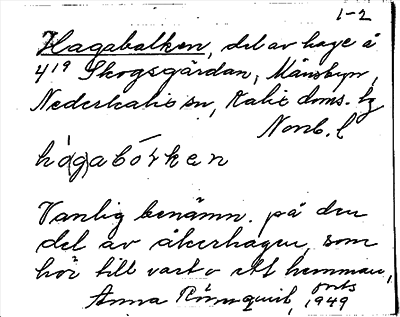 1-2
Hagabalken, del av hage å
4¹⁹ Skogsgärdan, Månsbyn,
Nederkalix sn, Kalix doms. hg
Norrb. l
há(g)abóλken
Vanlig benämn. på den
del av åkerhagen, som
hör till vart o ett hemman,
Anna Rönnquist,
1949